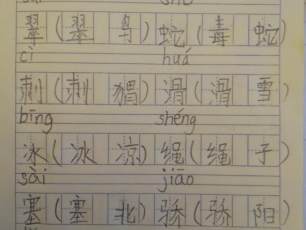 翠(翠鸟)蛇(毒蛇)
cì huá
刺(刺猬)滑(滑雪)
bīng shéng
冰(冰凉)绳(绳子)
sài jiāo
塞(塞北)骄(骄阳)